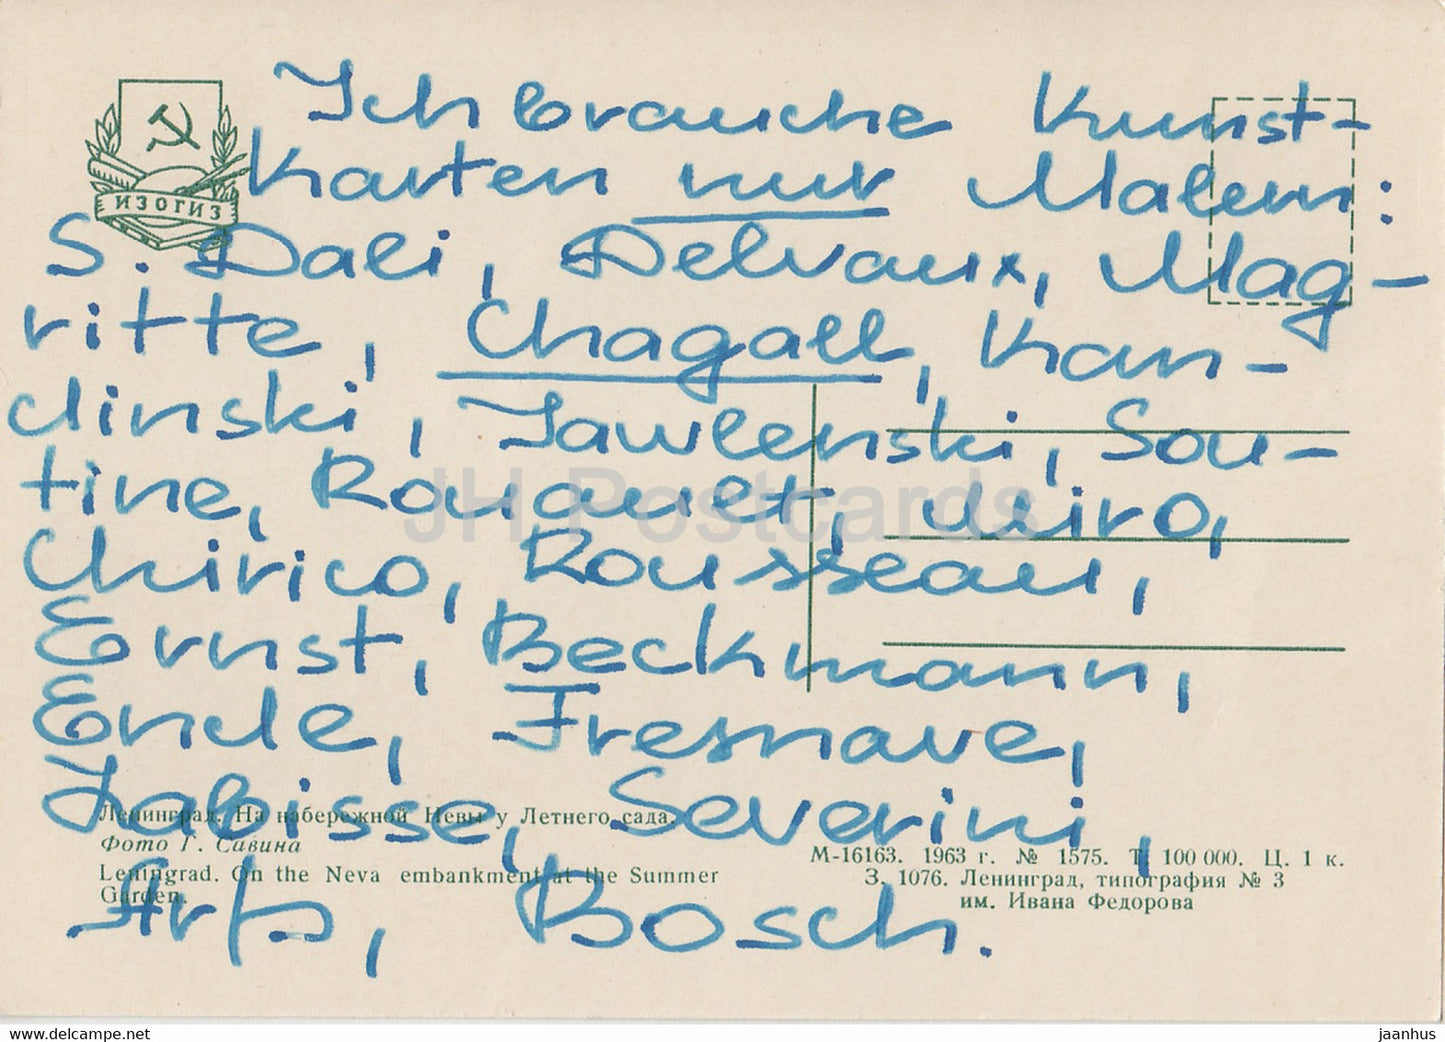 Ich brauche Kunst-
Karten nur Malern:
S. Dali, Delvaux, Mag-
ritte, Chagall, Kan-
dinski, Jawlenski, Sou-
tine, Rouauet, Miro,
Chirico, Rousseau,
Ernst, Beckmann,
Ende, Fresnave,
Jabisse, Severini,
Arp, Bosch.
ИЗОГИЗ
JH Postcards
Ленинград. На набережной Невы у Летнего сада.
Фото Г. Савина
Leningrad. On the Neva embankment at the Summer
Garden.
М-16163. 1963 г. № 1575. Т. 100 000. Ц. 1 к.
З. 1076. Ленинград, типография № 3
им. Ивана Федорова
www.delcampe.net
jaanhus